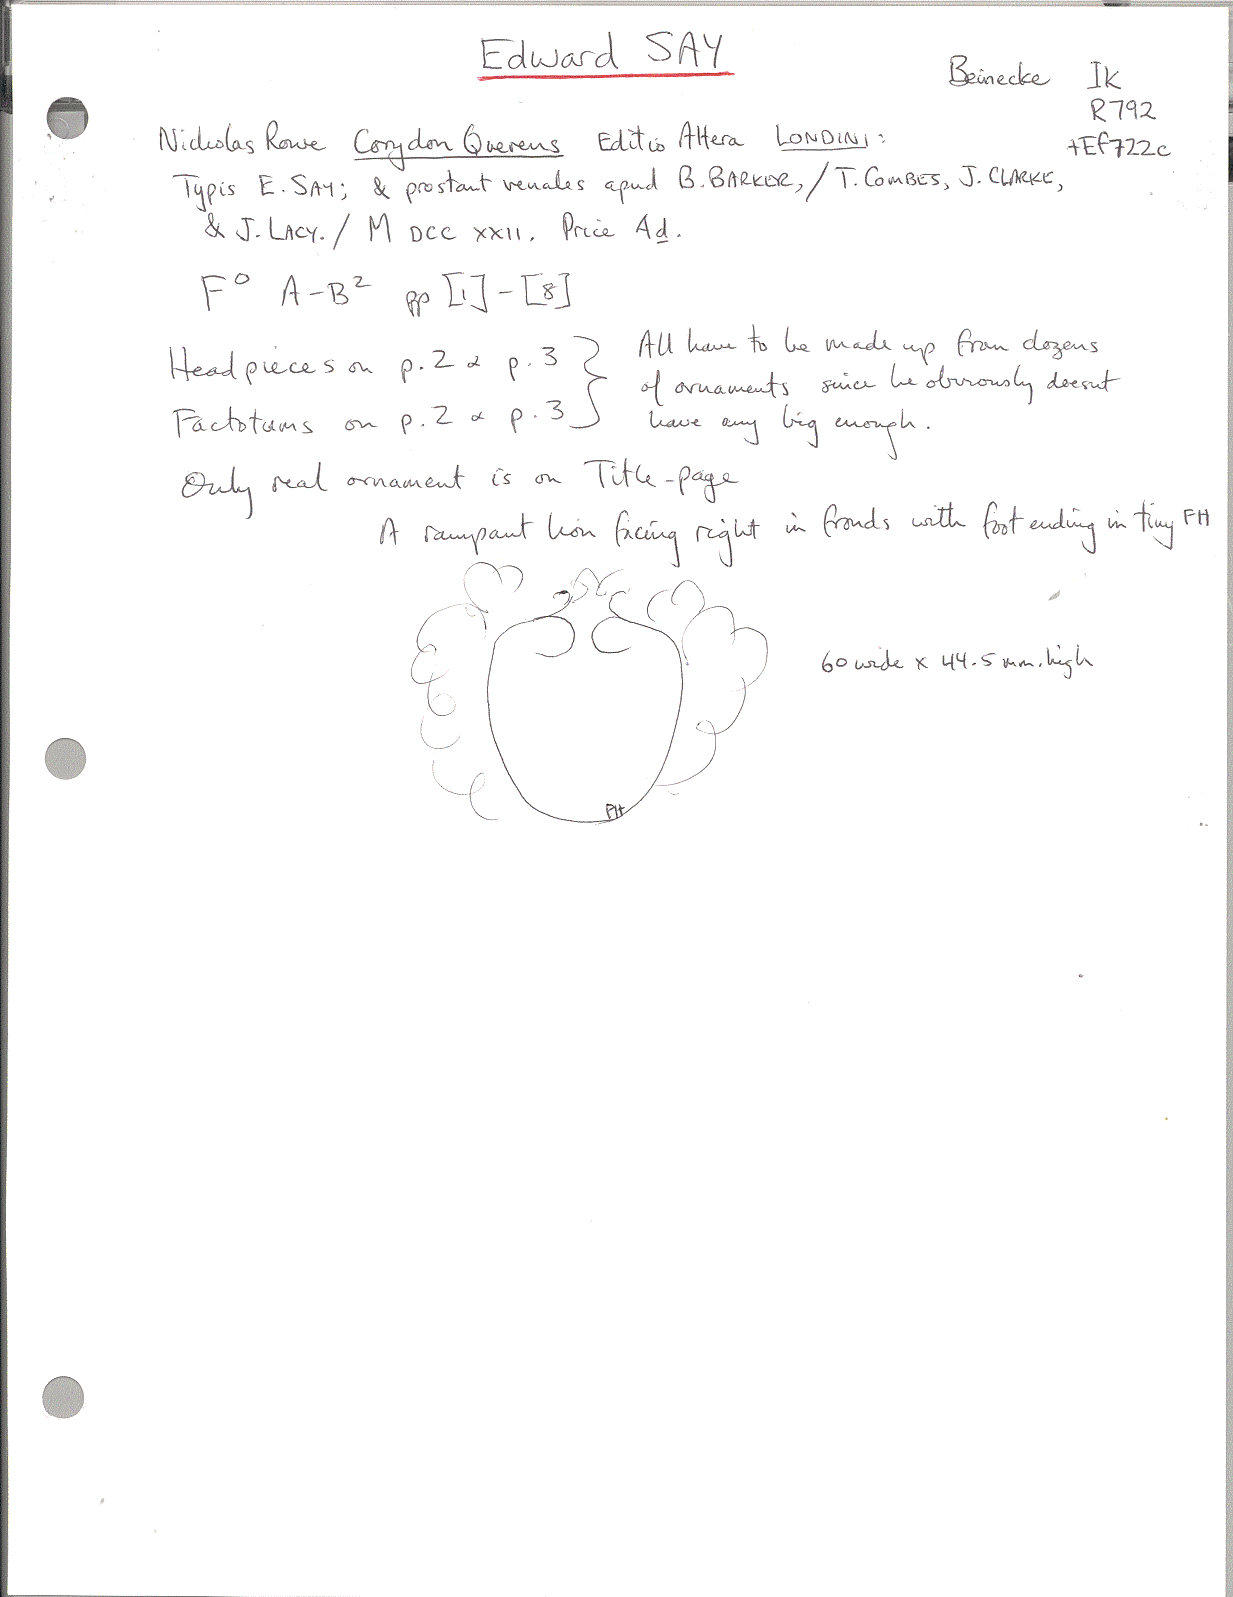 Edward SAY
Beinecke IK
R792
+Ef722c
Nicholas Rowe Corydon Querens Editio Altera LONDINI:
Typis E. SAY; & prostant venales apud B. BARKER, / T. COMBES, J. CLARKE,
& J. LACY. / M DCC XXII. Price 4d.
F° A-B² pp [1]-[8]
Headpieces on p. 2 & p. 3
Factotums on p. 2 & p. 3
All have to be made up from dozens
of ornaments since he obviously doesnt
have any big enough.
Only real ornament is on Title-page
A rampant lion facing right in fronds with foot ending in tiny FH
60 wide x 44.5 mm. high
FH